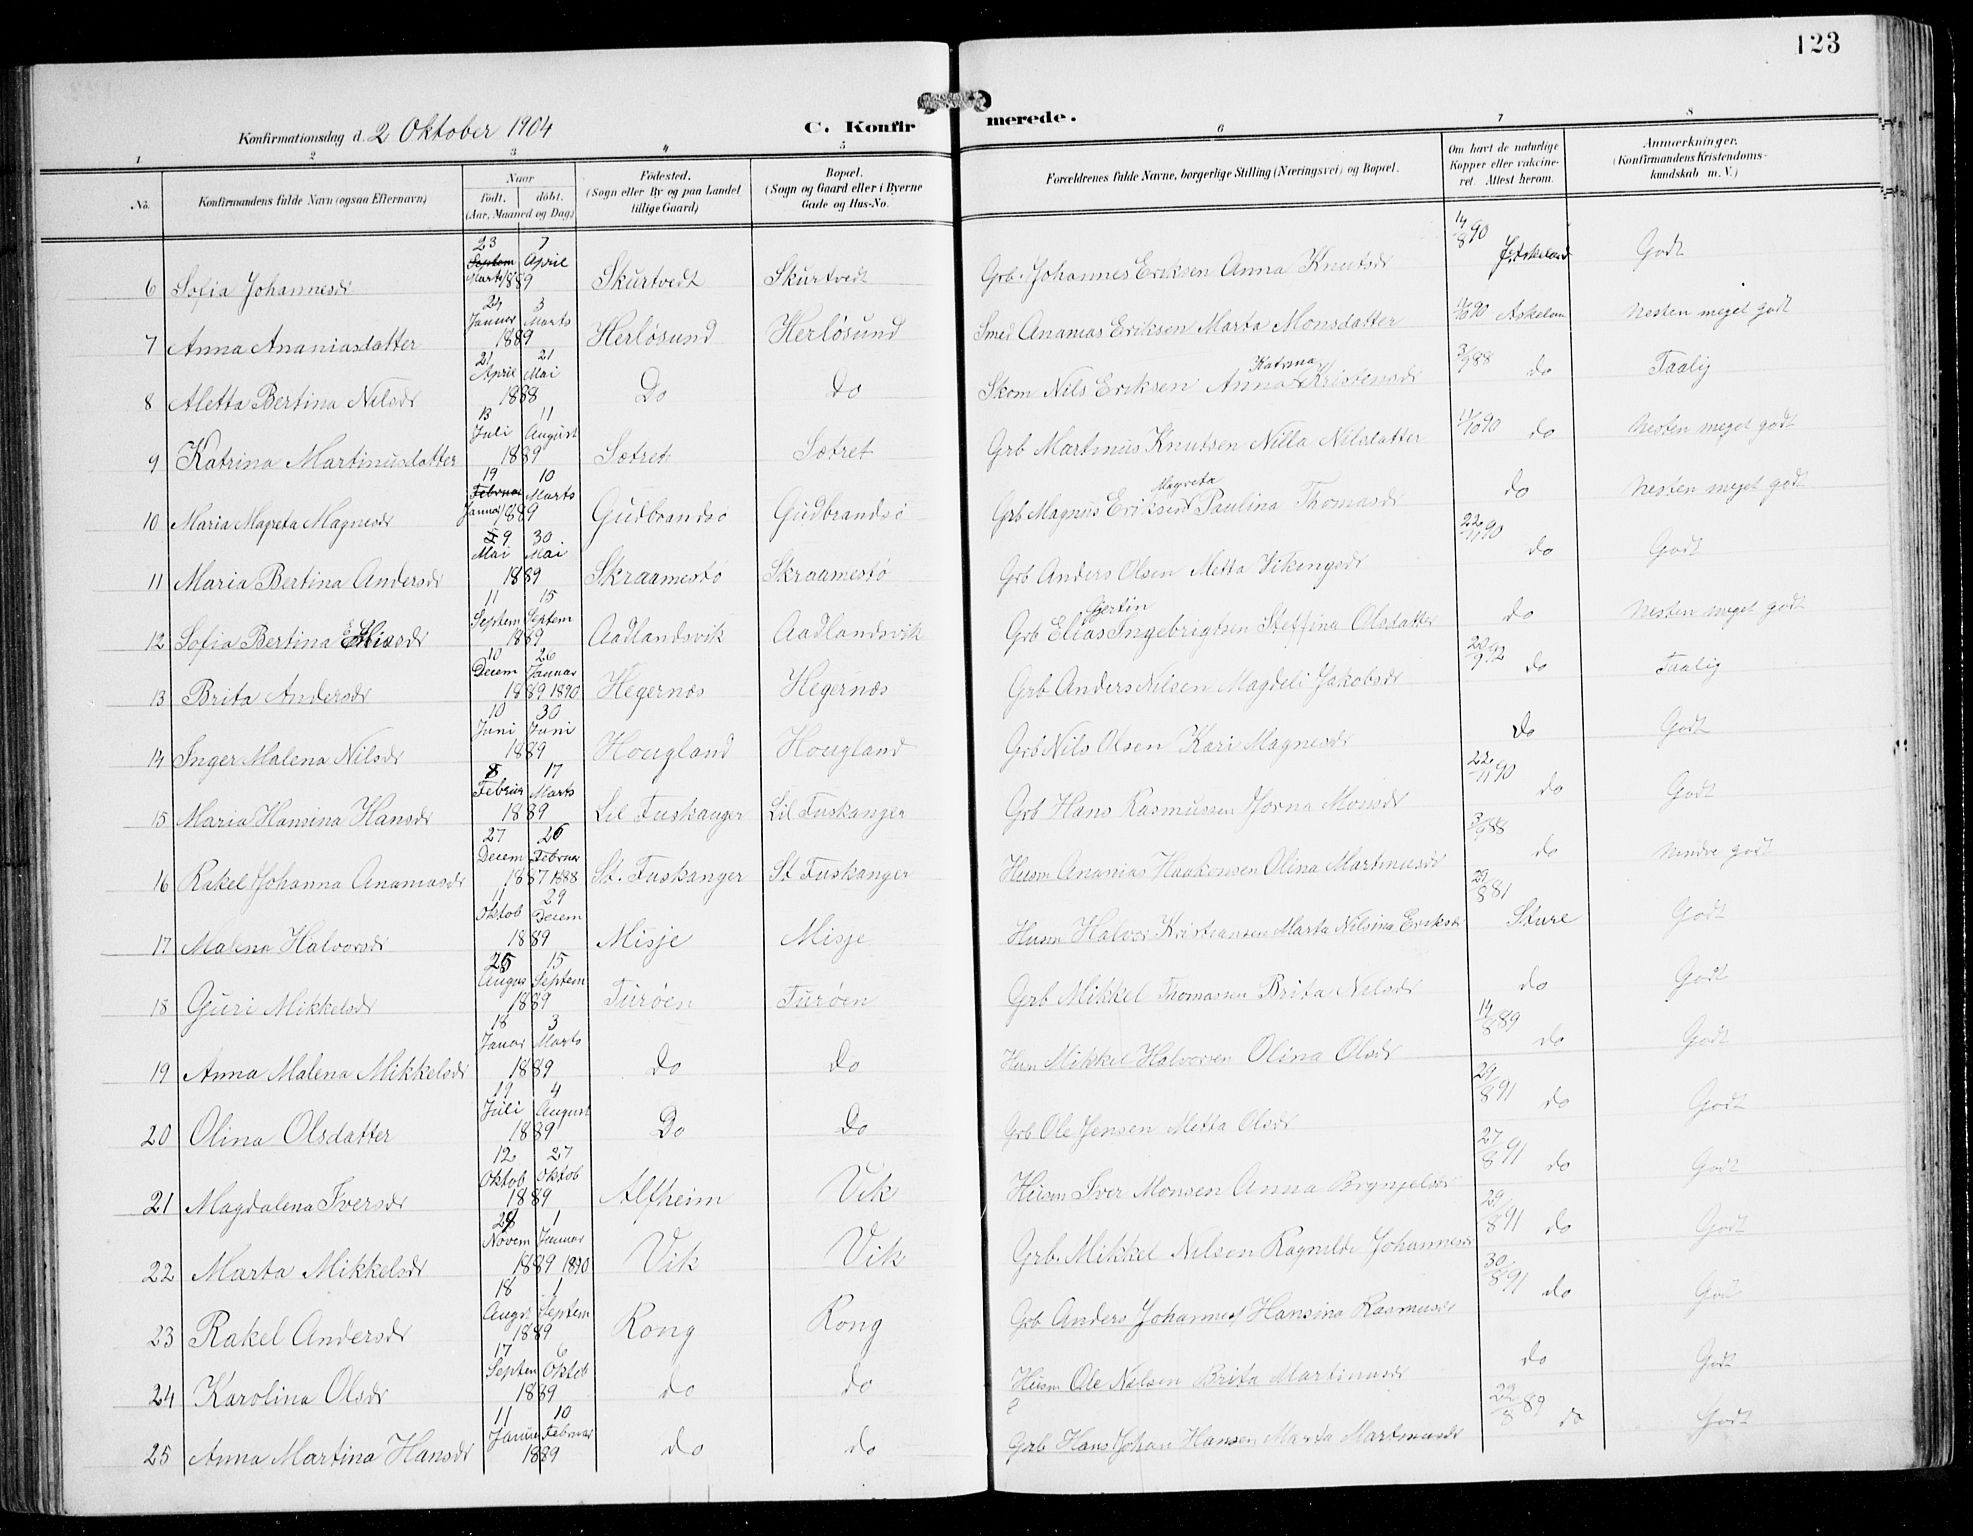 123
Konfirmationsdag d. 2 Oktober 1904 C. Konfirmerede.
1 2 3 4 5 6 7 8
No. Konfirmandens fulde Navn (ogsaa Efternavn) Naar født. døbt. (Aar, Maaned og Dag) Fødested. (Sogn eller By og paa Landet tillige Gaard) Bopæl. (Sogn og Gaard eller i Byerne Gade og Hus-No. Forældrenes fulde Navne, borgerlige Stilling (Næringsvei) og Bopæl. Om havt de naturlige Kopper eller vakcineret. Attest herom. Anmærkninger. (Konfirmandens Kristendomskundskab m. V.)
6 Sofia Johannesdr 23 Septem Marts 7 April 1889 Skurtvedt Skurtvedt Grb. Johannes Eriksen Anna Knutsdr 14/8 90 Godt
7 Anna Ananiasdatter 24 Januar 3 Marts 1889 Herløsund Herløsund Smed Ananias Eriksen Marta Monsdatter Nesten meget godt
8 Aletta Bertina Nilsdr 21 April 21 Mai 1888 Do Do Skom Nils Eriksen Anna Katrina Kristensdr 3/9 88 do Taalig
9 Katrina Martinusdatter 13 Juli 11 August 1889 Sætret Sætret Grb Martinus Knutsen Nilla Nilsdatter 11/10 90 do Nesten meget godt
10 Maria Mapeta Magnesdr 19 Februar Januar 10 Marts 1889 Gudbrandsø Gudbrandsø Grb Magnus Eriksen Magreta Paulina Thomasdr do Nesten meget godt
11 Maria Bertina Andersdr 9 Mai 30 Mai 1889 Skraamestø Skraamestø Grb Anders Olsen Metta Vikengsdr 22/11 90 do Godt
12 Sofia Bertina Eliasdr 11 Septem 15 Septem 1889 Aadlandsvik Aadlandsvik Grb Elias Gjertin Ingebrigtsen Steffina Olsdatter do Nesten meget godt
13 Brita Andersdr 10 Decem 26 Januar 1889 1890 Hegernæs Hegernæs Grb Anders Nilsen Magdeli Jakobsdr 20/9 92 do Taalig
14 Inger Malena Nilsdr 10 Juni 30 Juni 1889 Hougland Hougland Grb Nils Olsen Kari Magnesdr do Godt
15 Maria Hansina Hansdr 8 Februar 17 Marts 1889 Lil Fuskanger Lil Fuskanger Grb Hans Rasmussen Jorna Monsdr 22/11 90 do Godt
16 Rakel Johanna Ananiasdr 27 Decem 26 Februar 1887 1888 St. Fuskanger St Fuskanger Husm Ananias Haakonsen Olina Martinusdr 3/9 88 do Mindre godt
17 Malena Halvorsdr 11 Oktob 29 Decem 1889 Misje Misje Husm Halvor Kristiansen Marta Nilsina Eriksdr 29/8 81 Sture Godt
18 Guri Mikkelsdr 25 August 15 Septem 1889 Turøen Turøen Grb Mikkel Thomassen Brita Nilsdr do Godt
19 Anna Malena Mikkelsdr 18 Januar 3 Marts 1889 do Do Husm Mikkel Halvorsen Olina Olsdr 14/8 89 do Godt
20 Olina Olsdatter 19 Juli 4 August 1889 Do Do Grb Ole Jensen Metta Olsdr 29/8 91 do Godt
21 Magdalena Iversdr 12 Oktob 27 Oktob 1889 Alfheim Vik Husm Iver Monsen Anna Brynjelsdr 27/8 91 do Godt
22 Marta Mikkelsdr Novem 1 Januar 1889 1890 Vik Vik Grb. Mikkel Nilsen Ragnilde Johannesdr 29/8 91 do Godt
23 Rakel Andersdr 18 August 1 Septem 1889 Rong Rong Grb Anders Johannes Hansina Rasmusdr 30/8 91 do Godt
24 Karolina Olsdr 17 Septem 6 Oktob 1889 do do Husm Ole Nilsen Brita Martinusdr do Godt
25 Anna Martina Hansdr 11 Januar 10 Februar 1889 do do Grb Hans Johan Hansen Marta Martinusdr 22/8 89 do Godt